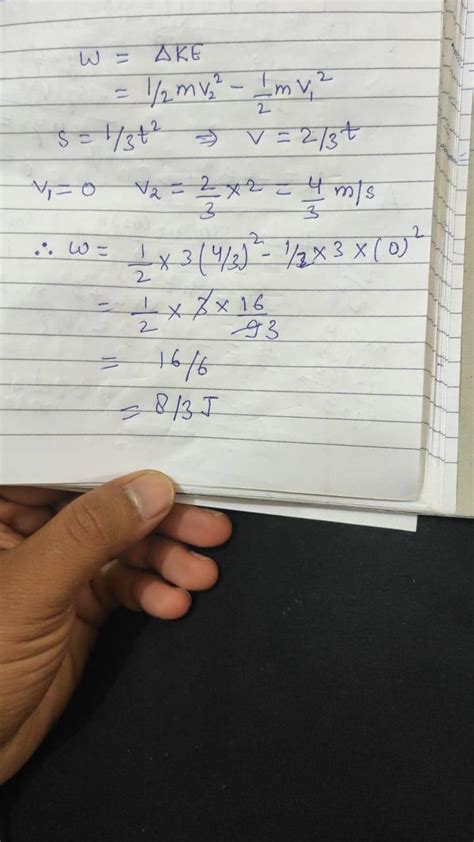 W = ΔKE
= 1/2 mV₂² - 1/2 mV₁²
S = 1/3 t² ⇒ V = 2/3 t
V₁ = 0 V₂ = 2/3 × 2 = 4/3 m/s
∴ W = 1/2 × 3 (4/3)² - 1/2 × 3 × (0)²
= 1/2 × 3 × 16/9 3
= 16/6
= 8/3 J